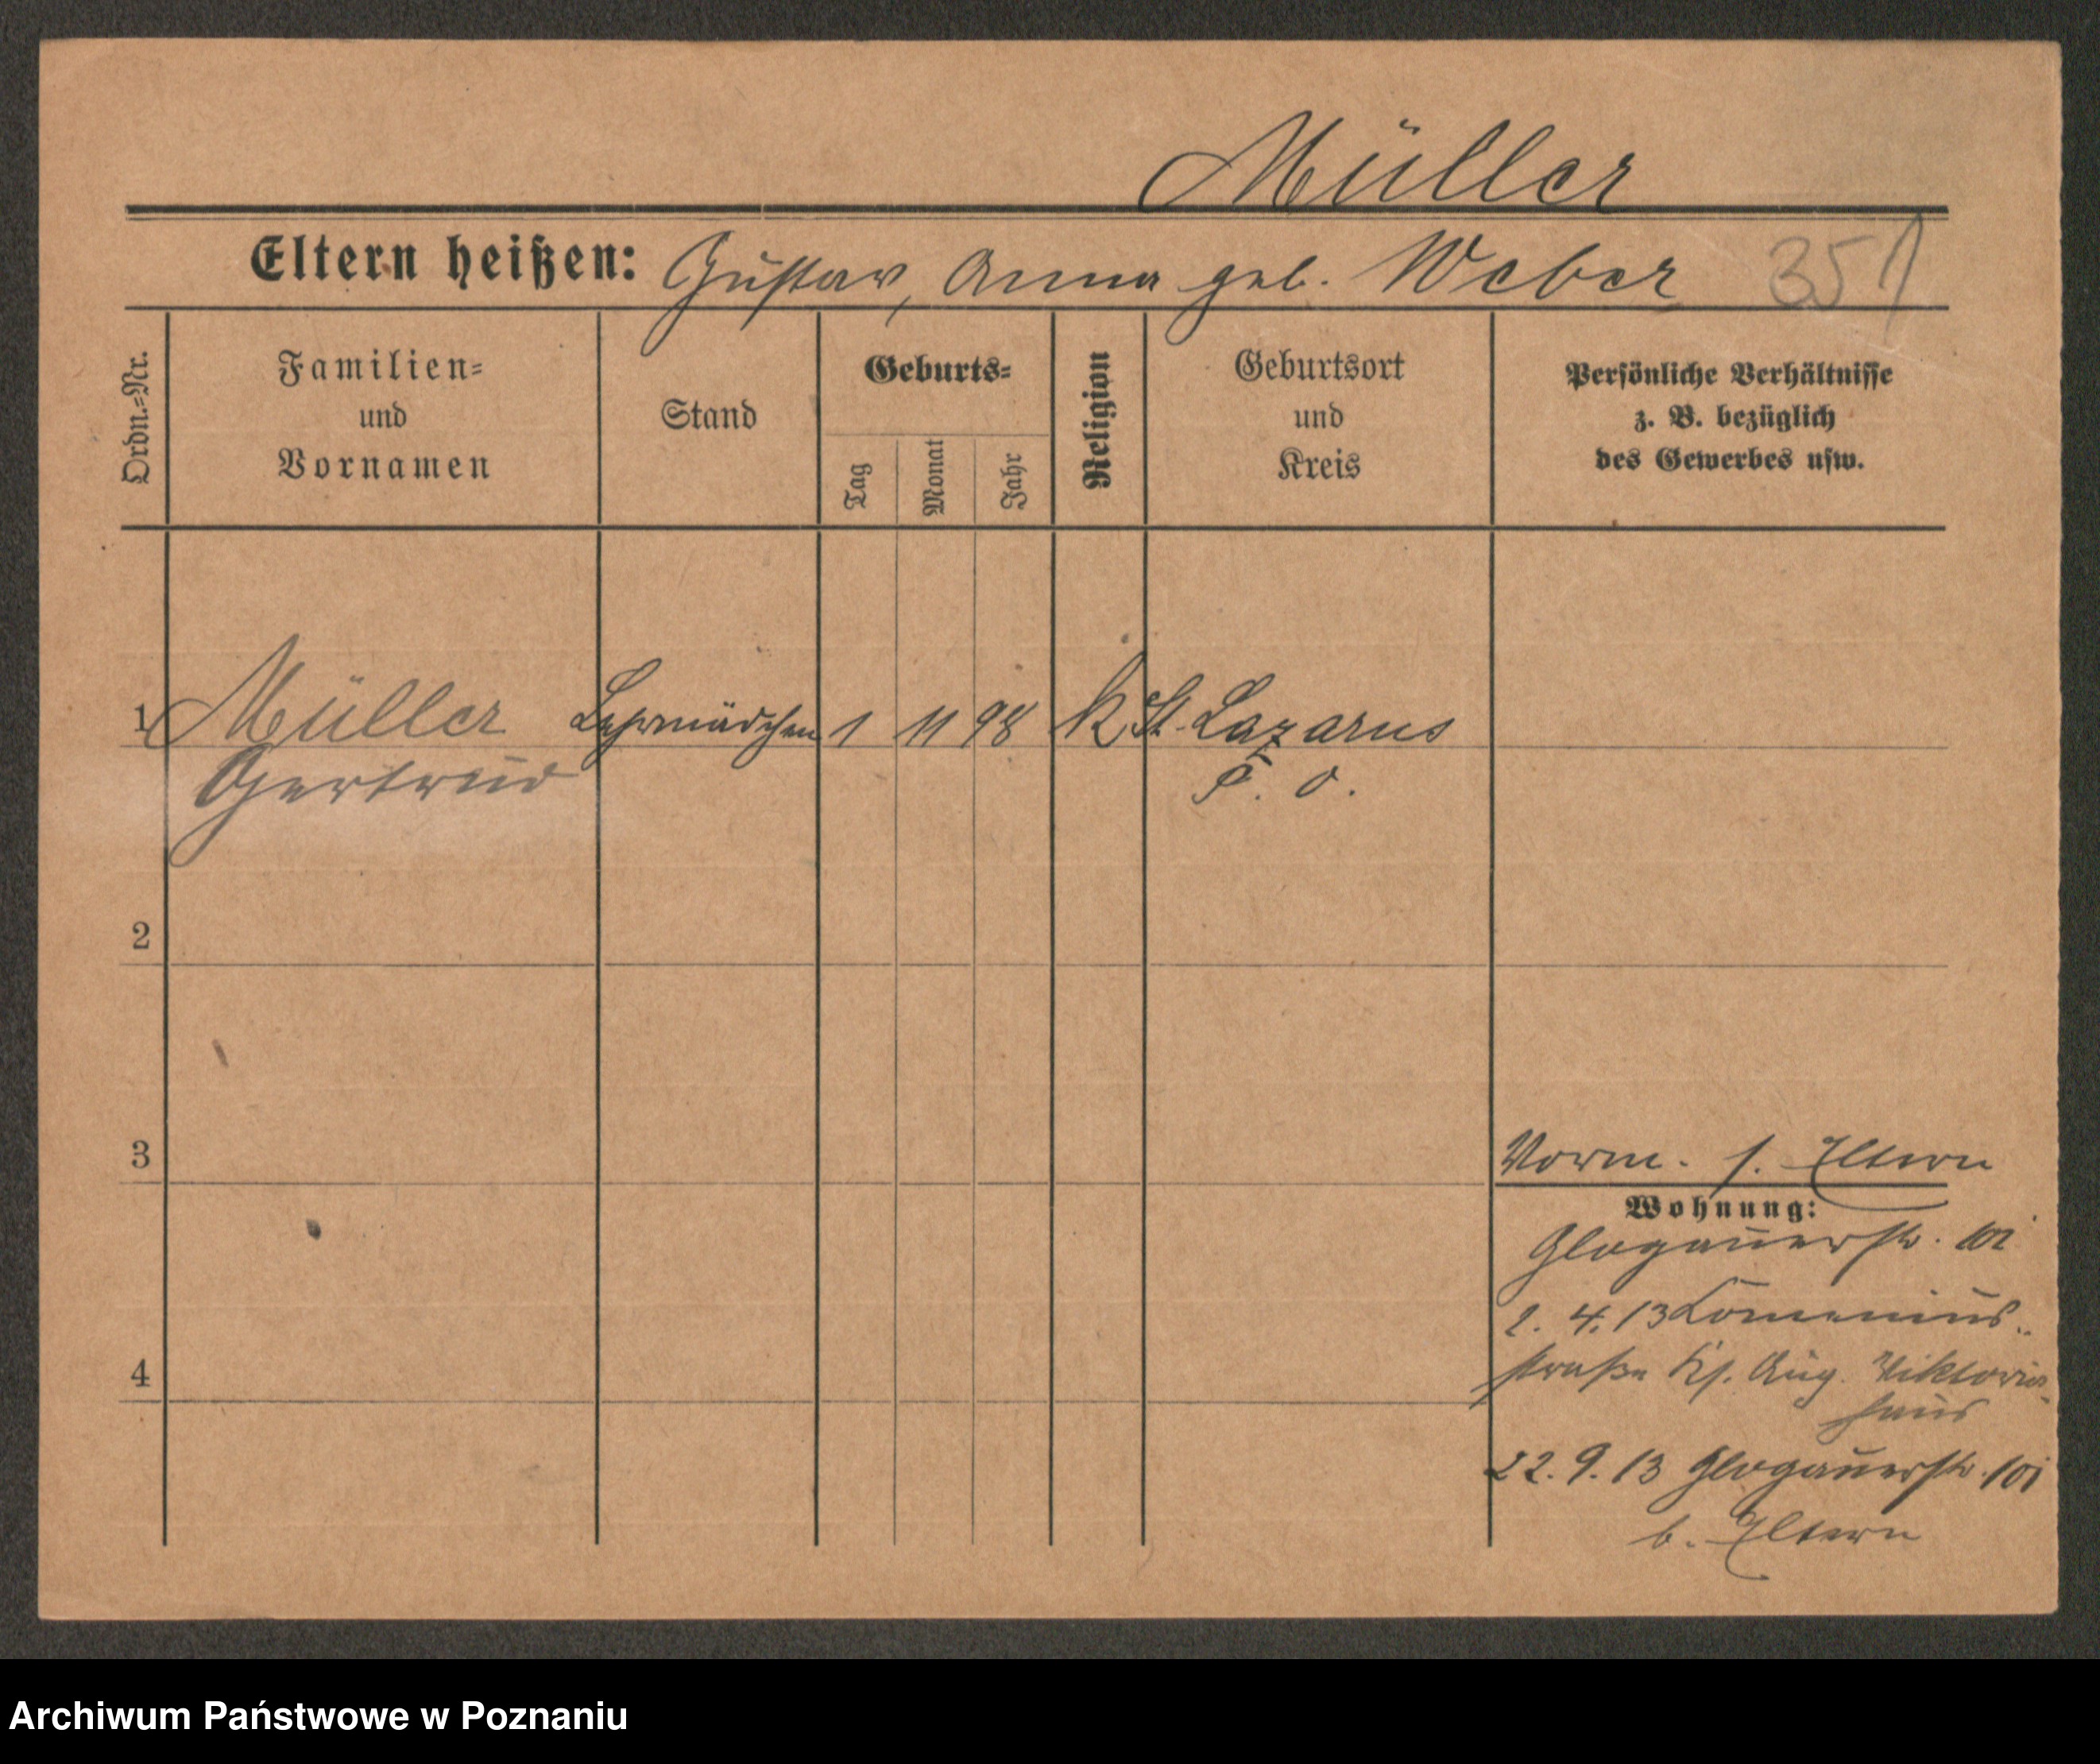 Müller
Eltern heißen: Gustav, Anna geb. Weber 351
Ordn.-Nr.
Familien-
und
Vornamen
Stand
Geburts-
Tag
Monat
Jahr
Religion
Geburtsort
und
Kreis
Persönliche Verhältnisse
z. B. bezüglich
des Gewerbes usw.
1 Müller Lehrmädchen 1 11 98 k St. Lazarus
Gertrud P. O.
2
3
Vorm. s. Eltern
Wohnung:
Glogauerstr. 101
2. 4. 13 Comenius-
straße Ks. Aug. Viktoria-
haus
4
22. 9. 13 Glogauerstr. 101
b. Eltern
Archiwum Państwowe w Poznaniu